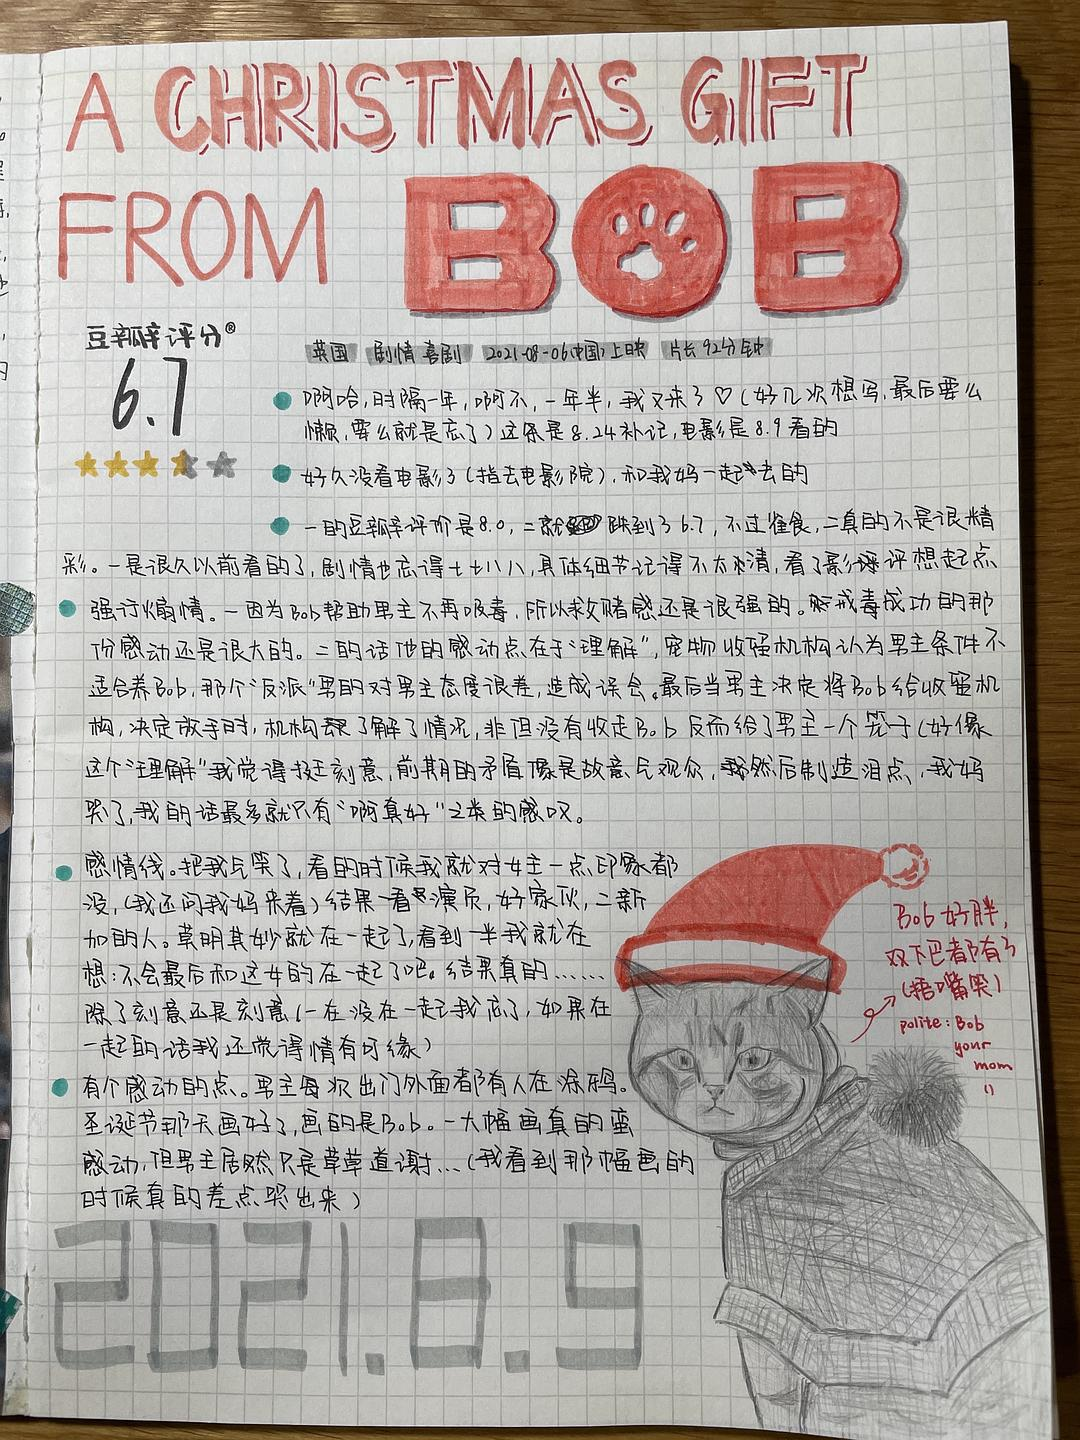 A CHRISTMAS GIFT
FROM BOB
豆瓣评分®
6.7
英国 剧情 喜剧 2021-08-06(中国)上映 片长92分钟
啊哈,时隔一年,啊不,一年半,我又来了♡(好几次想写,最后要么
懒,要么就是忘了)这条是8.24补记,电影是8.9看的
好久没看电影了(指去电影院),和我妈一起去的
一的豆瓣评价是8.0,二就跌到了6.7,不过雀食,二真的不是很精
彩。一是很久以前看的了,剧情也忘得七七八八,具体细节记得不太清,看了影评想起点
强行煽情。一因为Bob帮助男主不再吸毒,所以救赎感还是很强的。戒毒成功的那
份感动还是很大的。二的话他的感动点在于"理解",宠物收容机构认为男主条件不
适合养Bob,那个"反派"男的对男主态度很差,造成误会。最后当男主决定将Bob给收容机
构,决定放手时,机构了解了情况,非但没有收走Bob反而给了男主一个笼子(好像
这个"理解"我觉得挺刻意,前期的矛盾像是故意气观众,然后制造泪点,我妈
哭了,我的话最多就只有"啊真好"之类的感叹。
感情线。把我气笑了,看的时候我就对女主一点印象都
没,(我还问我妈来着)结果一看演员,好家伙,二新
加的人。莫明其妙就在一起了,看到一半我就在
想:不会最后和这女的在一起了吧。结果真的……
除了刻意还是刻意(一在没在一起我忘了,如果在
一起的话我还觉得情有可缘)
有个感动的点。男主每次出门外面都有人在涂鸦。
圣诞节那天画好了,画的是Bob。一大幅画真的蛮
感动,但男主居然只是草草道谢…(我看到那幅画的
时候真的差点哭出来)
Bob好胖,
双下巴都有了
(捂嘴笑)
polite:Bob
your
mom
2021.8.9